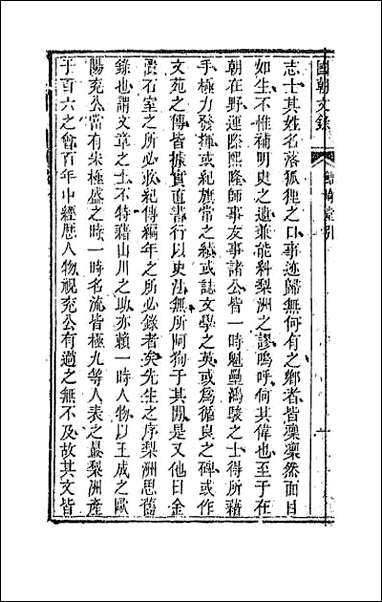 國朝文錄
鮚埼亭引
一
志士其姓名落狐狸之口事迹歸無何有之鄉者皆凜凜然面目
如生不惟補明史之遺兼能糾梨洲之謬嗚呼何其偉也至于在
朝在野運際熙隆師事友事諸公皆一時魁壘鴻駿之士得所藉
手極力發揮或紀旂常之績或誌文學之英或爲循良之碑或作
文苑之傳皆據實直書行以史法無所阿狥于其閒是又他日金
匱石室之所必收紀傳編年之所必錄者矣先生之序梨洲思舊
錄也謂文章之士不特藉山川之助亦賴一時人物以玉成之歐
陽兖公當有宋極盛之時一時名流皆極九等人表之最梨洲產
于百六之會百年中經歷人物視兖公有過之無不及故其文皆